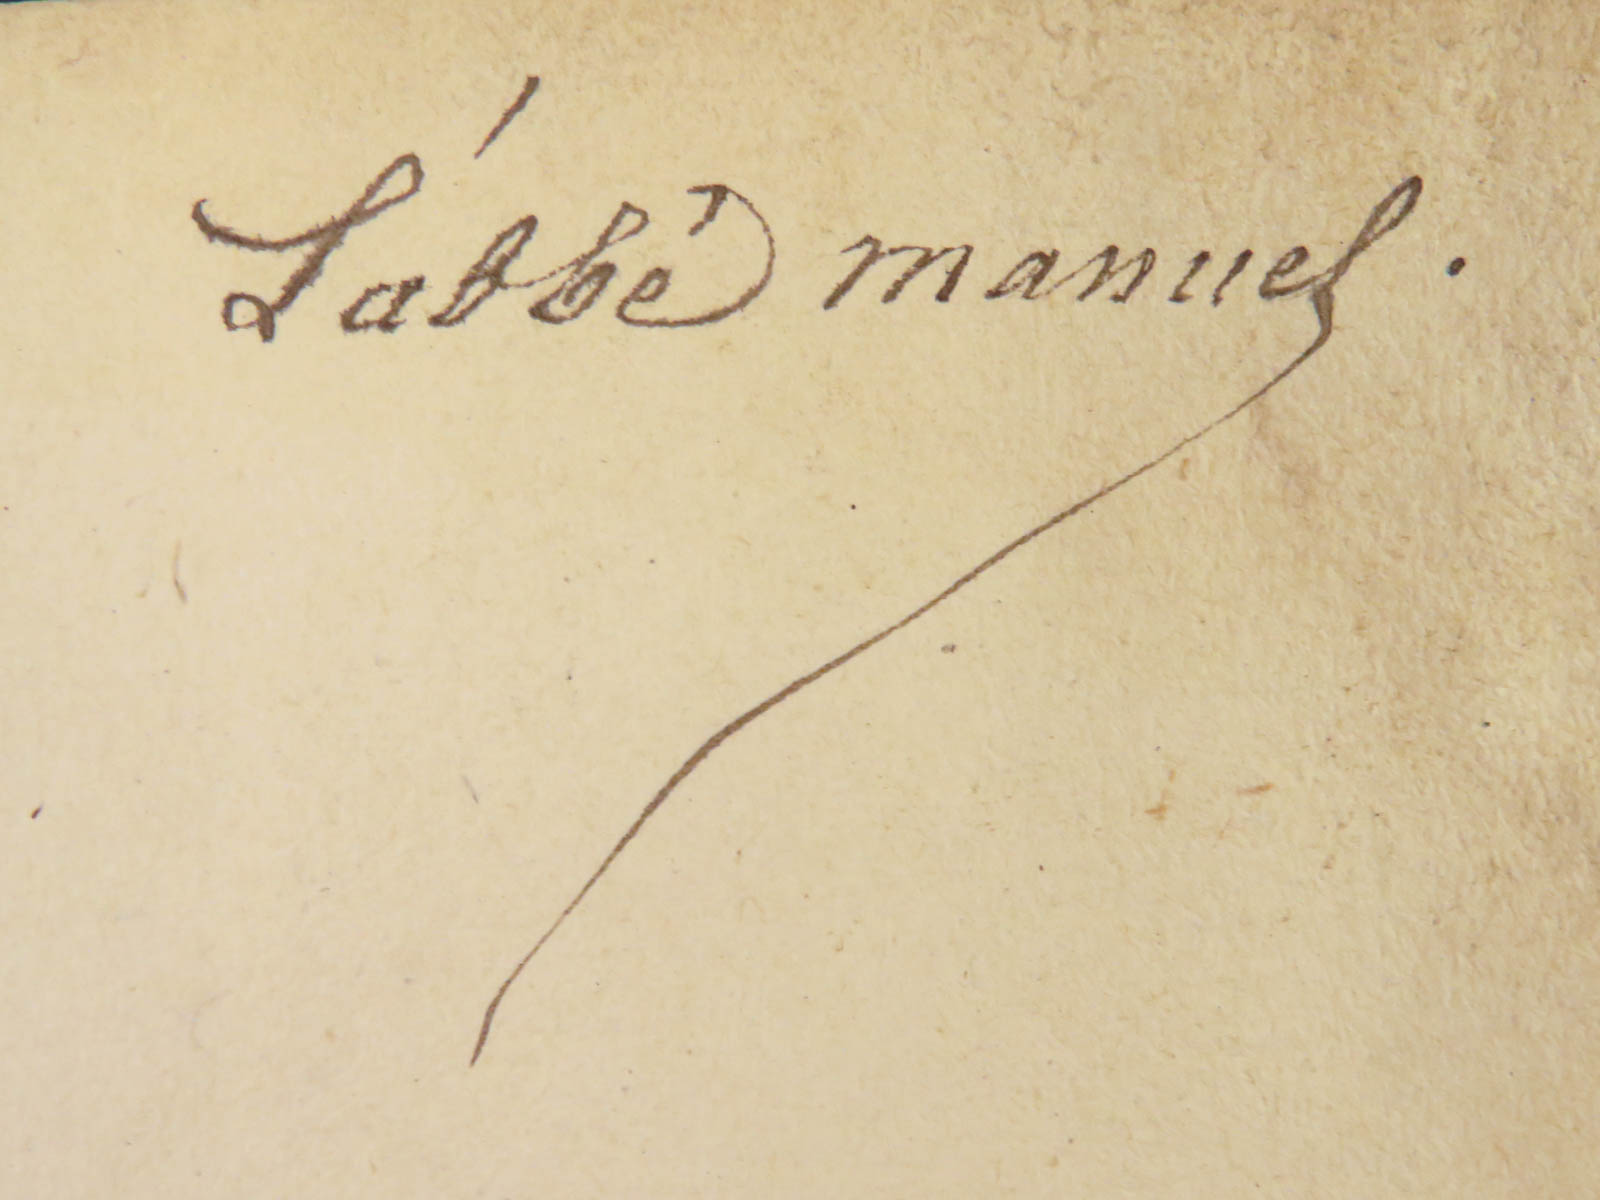 L'abbé manuel.